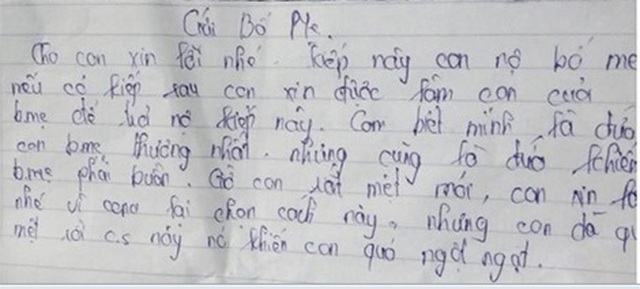 Gửi Bố Mẹ.
Cho con xin lỗi nhé. Kiếp này con nợ bố mẹ
nếu có kiếp sau con xin được làm con của
bmẹ để trả nợ kiếp này. Con biết mình là đứa
con bmẹ thương nhất. nhưng cũng là đứa khiến
bmẹ phải buồn. Giờ con rất mệt mỏi, con xin
nhé vì con lại chọn cách này, nhưng con đã
mệt rồi c.s này nó khiến con quá ngột ngạt.